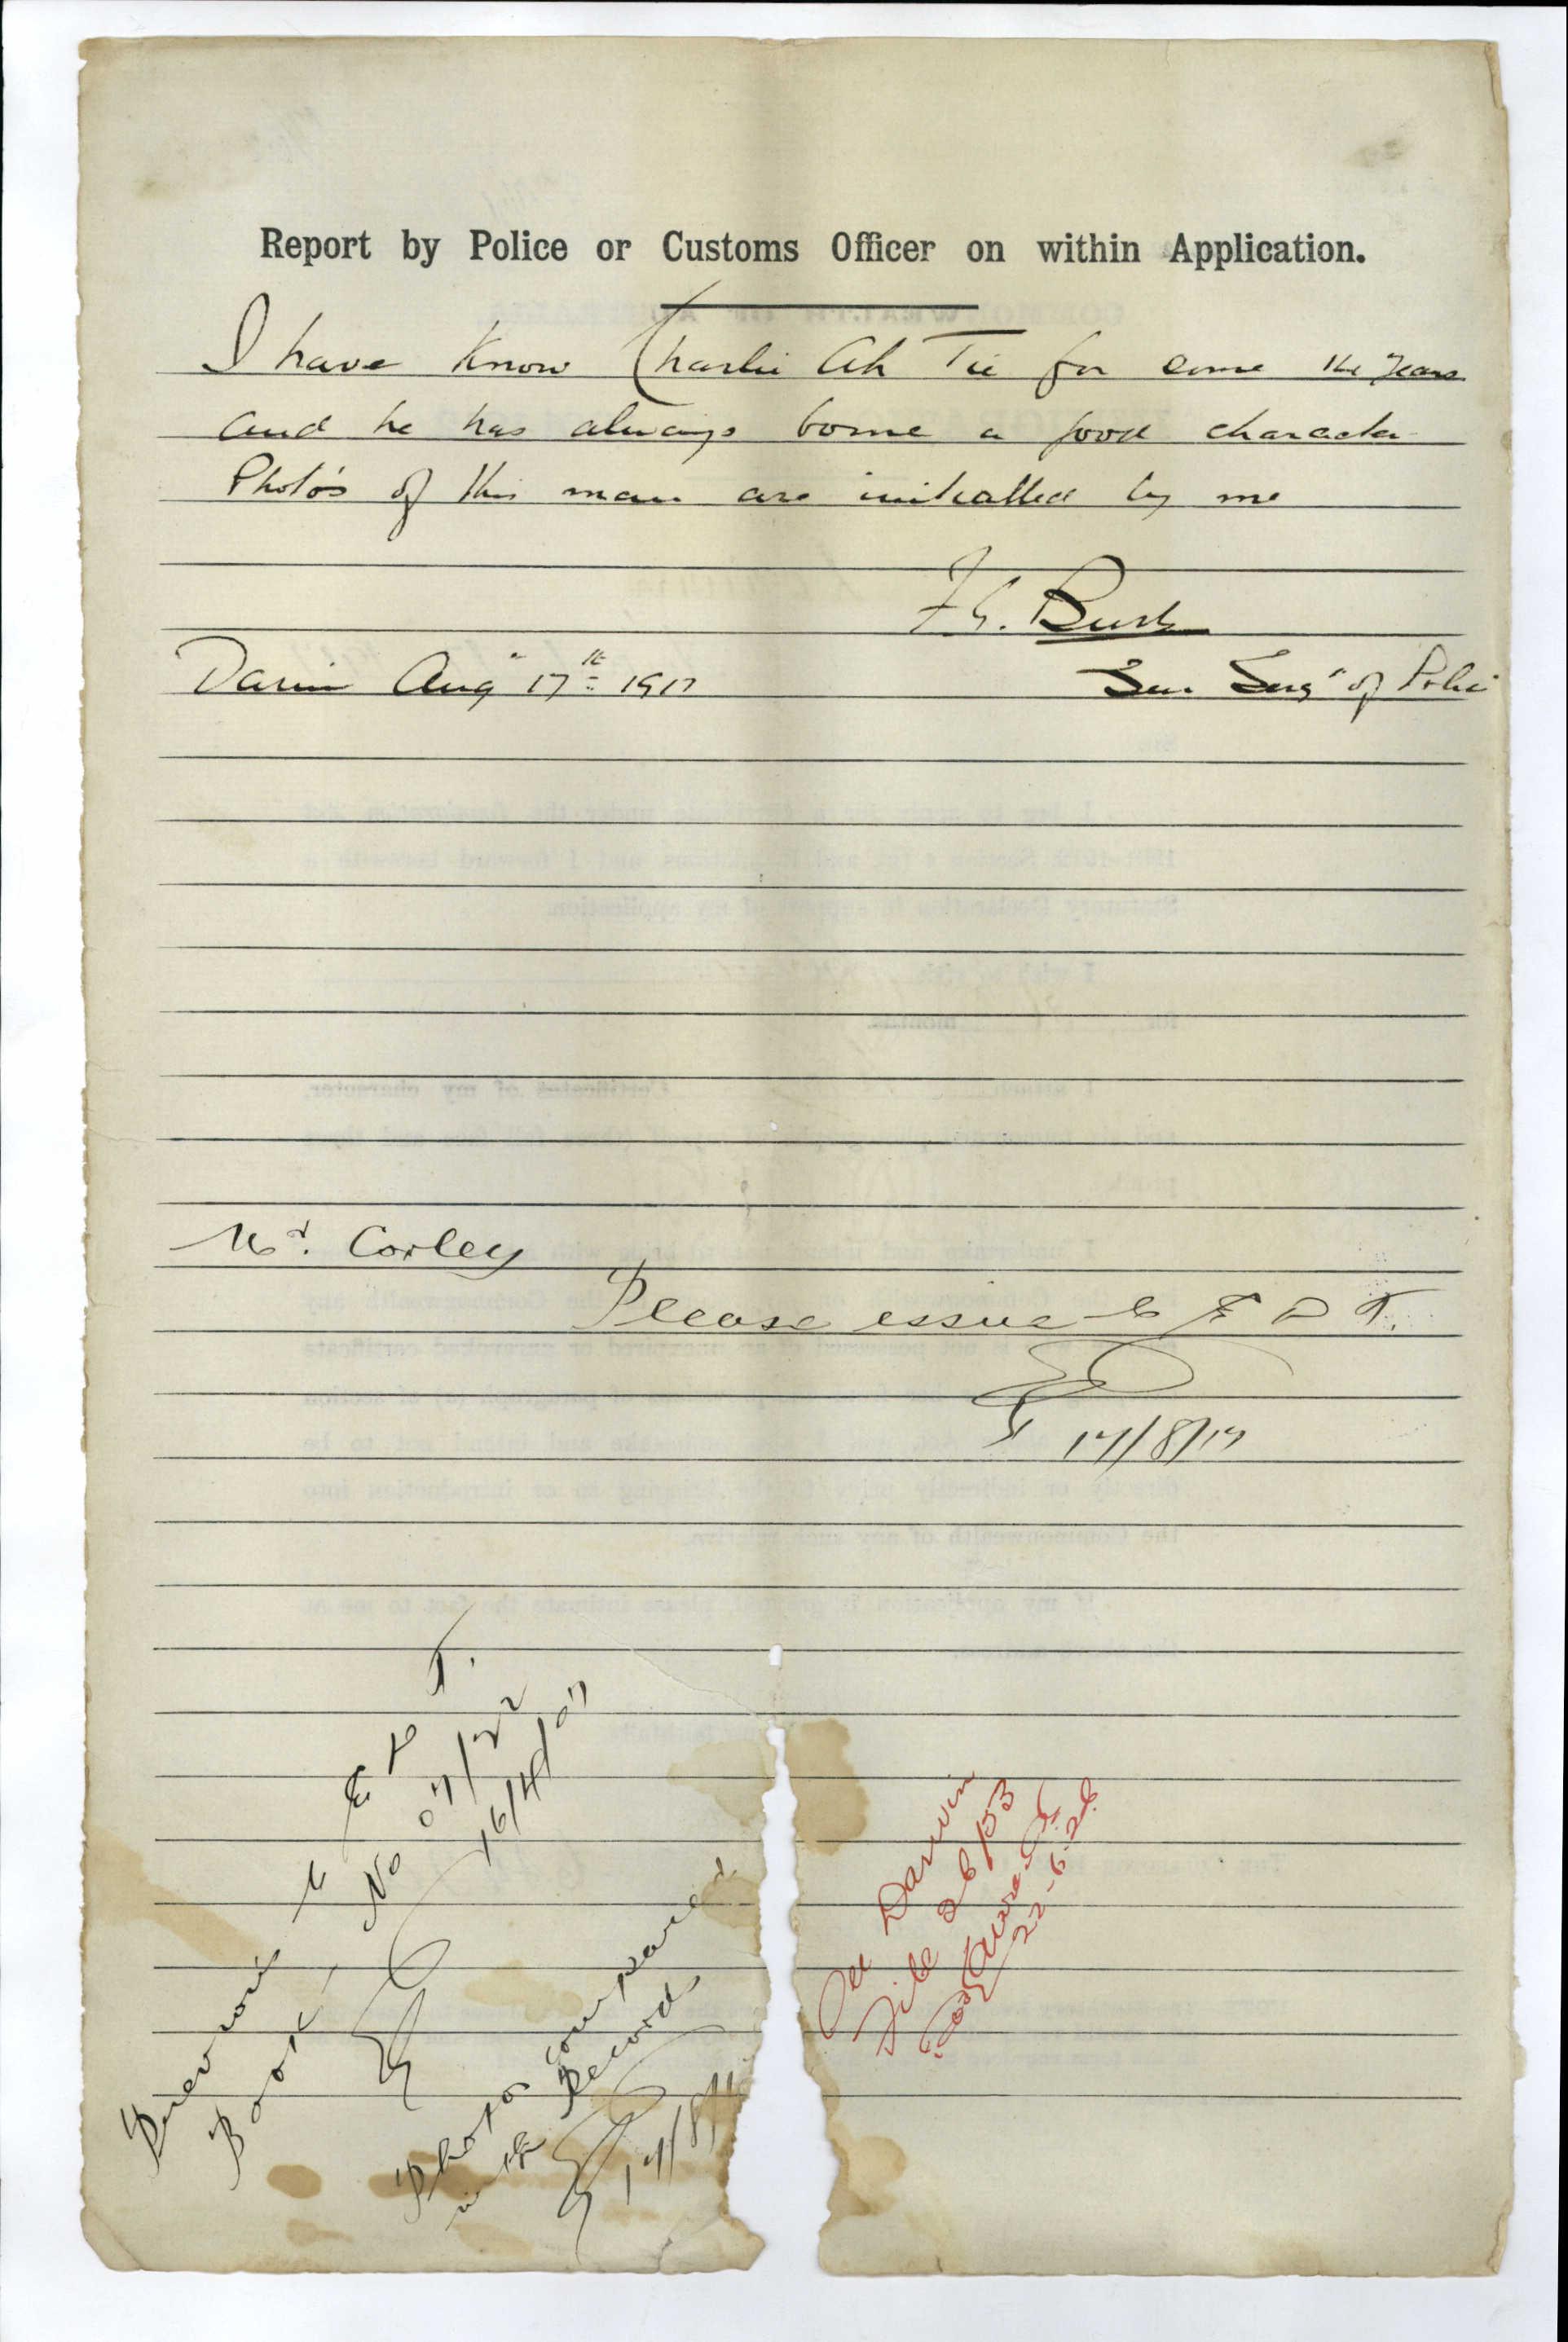 Report by Police or Customs Officer on within Application.
I have Know Charlie Ah Tie for some 14 years
and he has always borne a good character
Photo's of this man are initialled by me
F G. Burt
Darwin Aug 17th 1917
Sen. Serg of Police
Mr. Corley
Please issue C E D T.
17/8/17
Previous C E D T.
Book, No 07/22
16/4/07
Photos compared
with Records
17/8/1
See Darwin
File 26/53
22-6-26